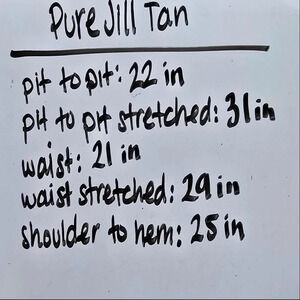 Pure Jill Tan
pit to pit: 22 in
pit to pit stretched: 31 in
waist: 21 in
waist stretched: 29 in
shoulder to hem: 25 in